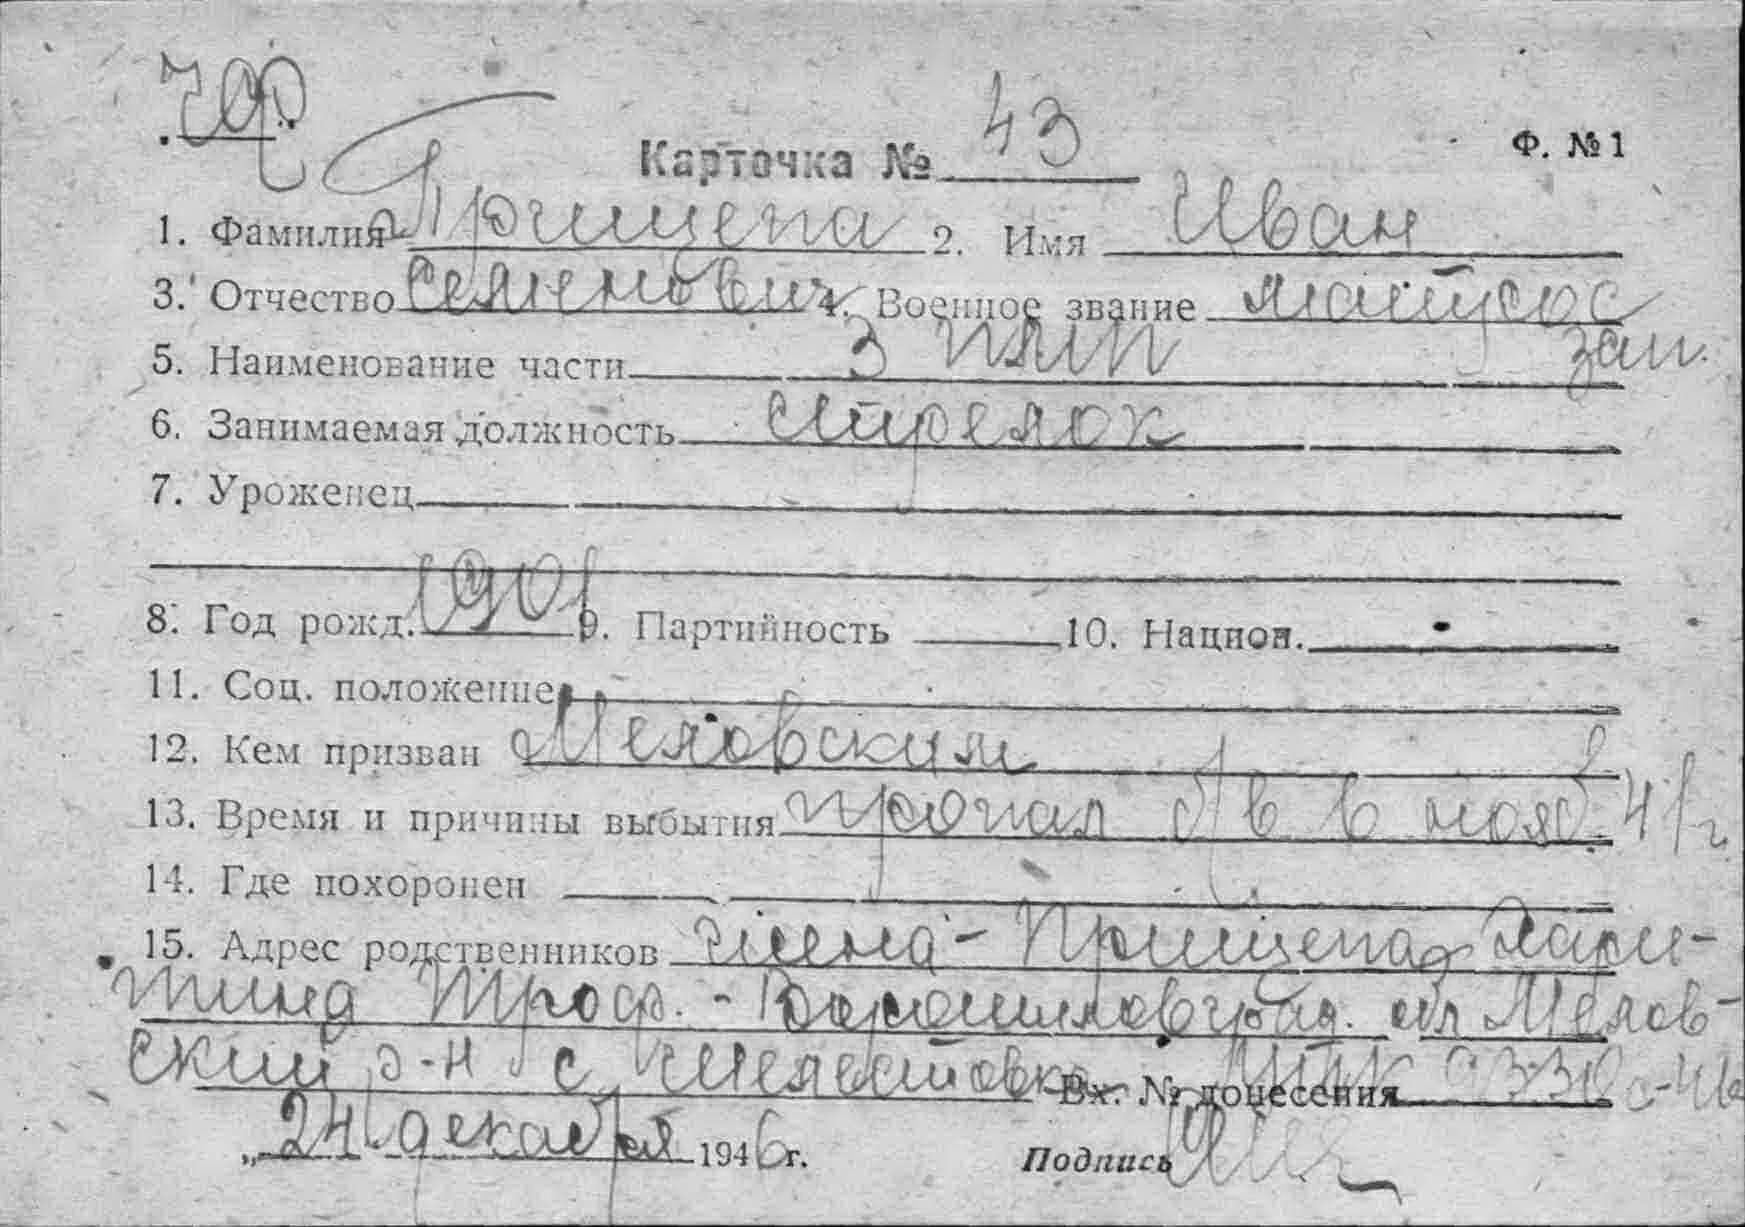 Карточка № 43 Ф. № 1
1. Фамилия Прищепа 2. Имя Иван
3. Отчество Семенович 4. Военное звание матрос
зап.
5. Наименование части 3 ПМП
6. Занимаемая должность стрелок
7. Уроженец
8. Год рожд. 1901 9. Партийность 10. Национ.
11. Соц. положение
12. Кем призван Меловским
13. Время и причины выбытия пропал б/в в нояб. 41 г
14. Где похоронен
15. Адрес родственников жена - Прищепа Хари-
тина Троф. - Ворошиловград. обл Мелов-
ский р-н с.
Вх. № донесения
„24" декабря 1946 г. Подпись